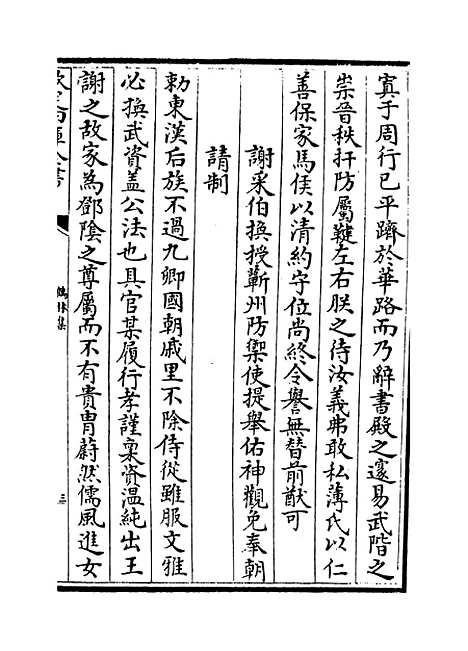 寘于周行已平躋於華路而乃辭書殿之邃易武階之
崇晉秩扞防屬鞬左右朕之待汝義弗敢私薄氏以仁
善保家馬侯以清約守位尚終令譽無替前猷可
謝采伯換授蘄州防禦使提舉佑神觀免奉朝
請制
勅東漢后族不過九卿國朝戚里不除侍從雖服文雅
必換武資盖公法也具官某履行孝謹稟資温純出王
謝之故家為鄧陰之尊屬而不有貴胄蔚然儒風進女
鶴林集
三